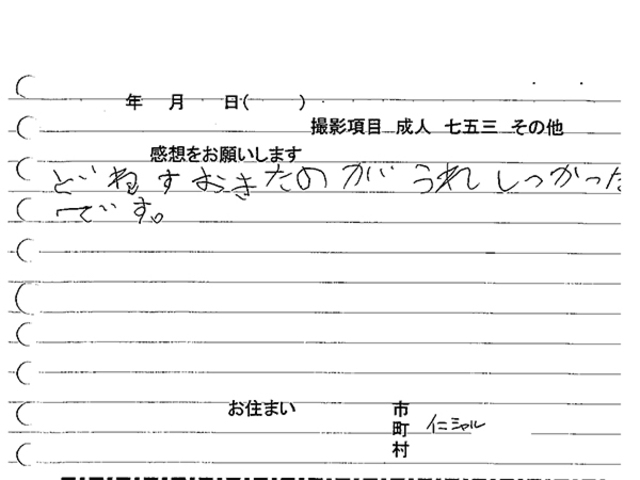 年 月 日( )
撮影項目 成人 七五三 その他
感想をお願いします
どれすおきたのがうれしっかった
です。
お住まい 市
町 仁シャル
村